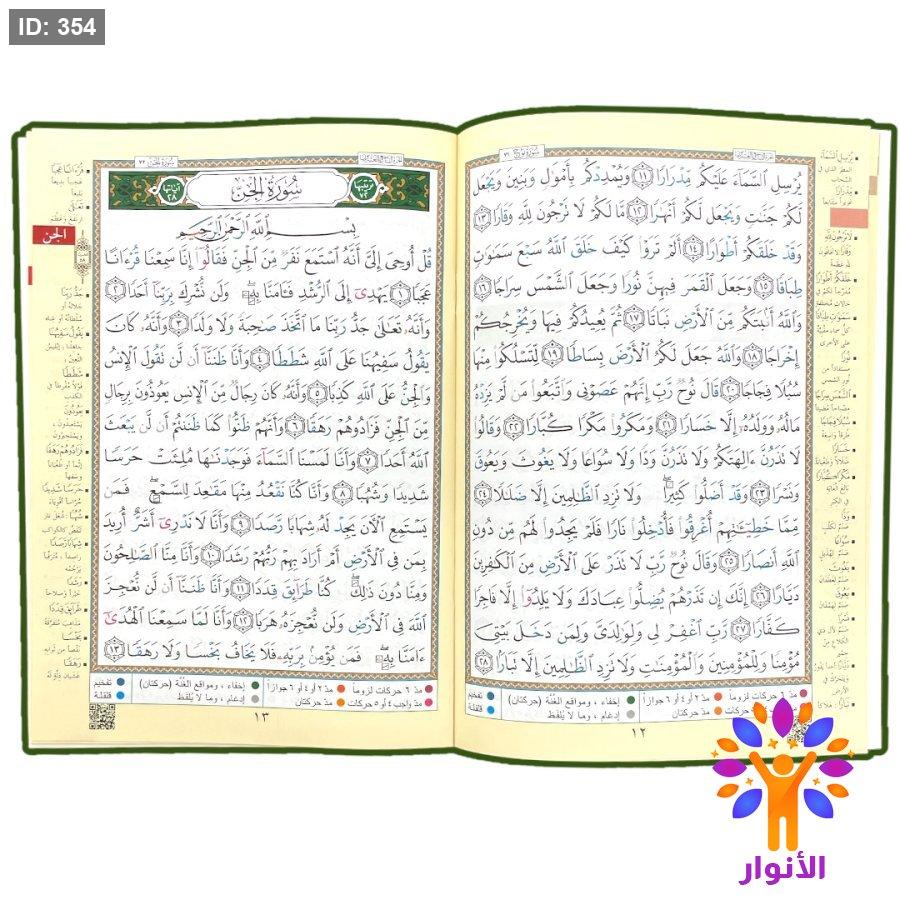 ID: 354
يُرْسِلِ السَّمَاءَ عَلَيْكُم مِّدْرَارًا ١١ وَيُمْدِدْكُم بِأَمْوَالٍ وَبَنِينَ وَيَجْعَل
لَّكُمْ جَنَّاتٍ وَيَجْعَل لَّكُمْ أَنْهَارًا ١٢ مَّا لَكُمْ لَا تَرْجُونَ لِلَّهِ وَقَارًا ١٣
وَقَدْ خَلَقَكُمْ أَطْوَارًا ١٤ أَلَمْ تَرَوْا كَيْفَ خَلَقَ اللَّهُ سَبْعَ سَمَاوَاتٍ
طِبَاقًا ١٥ وَجَعَلَ الْقَمَرَ فِيهِنَّ نُورًا وَجَعَلَ الشَّمْسَ سِرَاجًا ١٦
وَاللَّهُ أَنبَتَكُم مِّنَ الْأَرْضِ نَبَاتًا ١٧ ثُمَّ يُعِيدُكُمْ فِيهَا وَيُخْرِجُكُمْ
إِخْرَاجًا ١٨ وَاللَّهُ جَعَلَ لَكُمُ الْأَرْضَ بِسَاطًا ١٩ لِّتَسْلُكُوا مِنْهَا
سُبُلًا فِجَاجًا ٢٠ قَالَ نُوحٌ رَّبِّ إِنَّهُمْ عَصَوْنِي وَاتَّبَعُوا مَن لَّمْ يَزِدْهُ
مَالُهُ وَوَلَدُهُ إِلَّا خَسَارًا ٢١ وَمَكَرُوا مَكْرًا كُبَّارًا ٢٢ وَقَالُوا
لَا تَذَرُنَّ ءَالِهَتَكُمْ وَلَا تَذَرُنَّ وَدًّا وَلَا سُوَاعًا وَلَا يَغُوثَ وَيَعُوقَ
وَنَسْرًا ٢٣ وَقَدْ أَضَلُّوا كَثِيرًا وَلَا تَزِدِ الظَّالِمِينَ إِلَّا ضَلَالًا ٢٤
مِّمَّا خَطِيئَاتِهِمْ أُغْرِقُوا فَأُدْخِلُوا نَارًا فَلَمْ يَجِدُوا لَهُم مِّن دُونِ
اللَّهِ أَنصَارًا ٢٥ وَقَالَ نُوحٌ رَّبِّ لَا تَذَرْ عَلَى الْأَرْضِ مِنَ الْكَافِرِينَ
دَيَّارًا ٢٦ إِنَّكَ إِن تَذَرْهُمْ يُضِلُّوا عِبَادَكَ وَلَا يَلِدُوا إِلَّا فَاجِرًا
كَفَّارًا ٢٧ رَّبِّ اغْفِرْ لِي وَلِوَالِدَيَّ وَلِمَن دَخَلَ بَيْتِيَ
مُؤْمِنًا وَلِلْمُؤْمِنِينَ وَالْمُؤْمِنَاتِ وَلَا تَزِدِ الظَّالِمِينَ إِلَّا تَبَارًا ٢٨
مدّ ٦ حركات لزوماً مدّ ٢ أو ٤ أو ٦ جوازاً إخفاء ، ومواقع الغُنّة (حركتان) تفخيم
حركات مدّ حركتان إدغام ، وما لا يُلفظ قلقلة
١٢
ترتيبها ٧٢ سُورَةُ الْجِنّ آياتها ٢٨
بِسْمِ اللَّهِ الرَّحْمَٰنِ الرَّحِيمِ
قُلْ أُوحِيَ إِلَيَّ أَنَّهُ اسْتَمَعَ نَفَرٌ مِّنَ الْجِنِّ فَقَالُوا إِنَّا سَمِعْنَا قُرْءَانًا
عَجَبًا ١ يَهْدِي إِلَى الرُّشْدِ فَـَٔامَنَّا بِهِ وَلَن نُّشْرِكَ بِرَبِّنَا أَحَدًا ٢
وَأَنَّهُ تَعَالَى جَدُّ رَبِّنَا مَا اتَّخَذَ صَاحِبَةً وَلَا وَلَدًا ٣ وَأَنَّهُ كَانَ
يَقُولُ سَفِيهُنَا عَلَى اللَّهِ شَطَطًا ٤ وَأَنَّا ظَنَنَّا أَن لَّن تَقُولَ الْإِنسُ
وَالْجِنُّ عَلَى اللَّهِ كَذِبًا ٥ وَأَنَّهُ كَانَ رِجَالٌ مِّنَ الْإِنسِ يَعُوذُونَ بِرِجَالٍ
مِّنَ الْجِنِّ فَزَادُوهُمْ رَهَقًا ٦ وَأَنَّهُمْ ظَنُّوا كَمَا ظَنَنتُمْ أَن لَّن يَبْعَثَ
اللَّهُ أَحَدًا ٧ وَأَنَّا لَمَسْنَا السَّمَاءَ فَوَجَدْنَاهَا مُلِئَتْ حَرَسًا
شَدِيدًا وَشُهُبًا ٨ وَأَنَّا كُنَّا نَقْعُدُ مِنْهَا مَقَاعِدَ لِلسَّمْعِ فَمَن
يَسْتَمِعِ الْآنَ يَجِدْ لَهُ شِهَابًا رَّصَدًا ٩ وَأَنَّا لَا نَدْرِي أَشَرٌّ أُرِيدَ
بِمَن فِي الْأَرْضِ أَمْ أَرَادَ بِهِمْ رَبُّهُمْ رَشَدًا ١٠ وَأَنَّا مِنَّا الصَّالِحُونَ
وَمِنَّا دُونَ ذَٰلِكَ كُنَّا طَرَائِقَ قِدَدًا ١١ وَأَنَّا ظَنَنَّا أَن لَّن نُّعْجِزَ
اللَّهَ فِي الْأَرْضِ وَلَن نُّعْجِزَهُ هَرَبًا ١٢ وَأَنَّا لَمَّا سَمِعْنَا الْهُدَىٰ
ءَامَنَّا بِهِ فَمَن يُؤْمِن بِرَبِّهِ فَلَا يَخَافُ بَخْسًا وَلَا رَهَقًا ١٣
مدّ ٦ حركات لزوماً مدّ ٢ أو ٤ أو ٦ جوازاً إخفاء ، ومواقع الغُنّة (حركتان) تفخيم
مدّ واجب ٤ أو ٥ حركات مدّ حركتان إدغام ، وما لا يُلفظ قلقلة
١٣
الجن
الأنوار